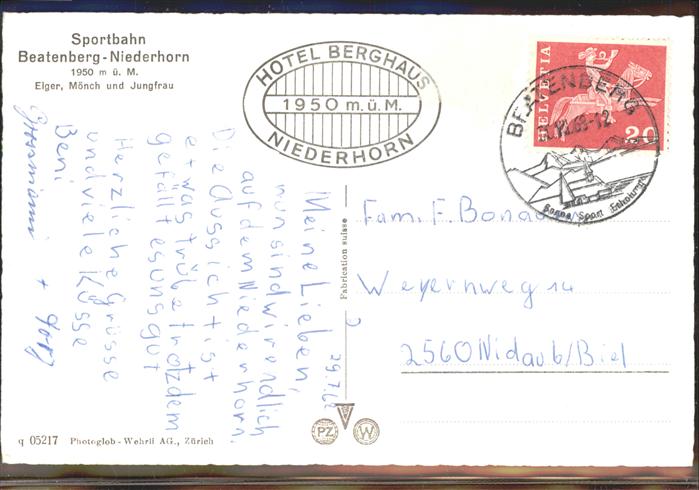 Sportbahn
Beatenberg-Niederhorn
1950 m ü. M.
Eiger, Mönch und Jungfrau
HOTEL BERGHAUS
1950 m.ü.M.
NIEDERHORN
HELVETIA
20
BEATENBERG
Sonne Sport Erholung
29.7.
Meine Lieben,
nun sind wir endlich
auf dem Niederhorn.
Die Aussicht ist
etwas trübe trotzdem
gefällt es uns gut
Herzliche Grüsse
und viele Küsse
Beni
Grosmami +
Fam. F.
Weyernweg 14
2560 Nidau b/Biel
Fabrication suisse
PZ
W
q 05217 Photoglob-Wehrli AG., Zürich